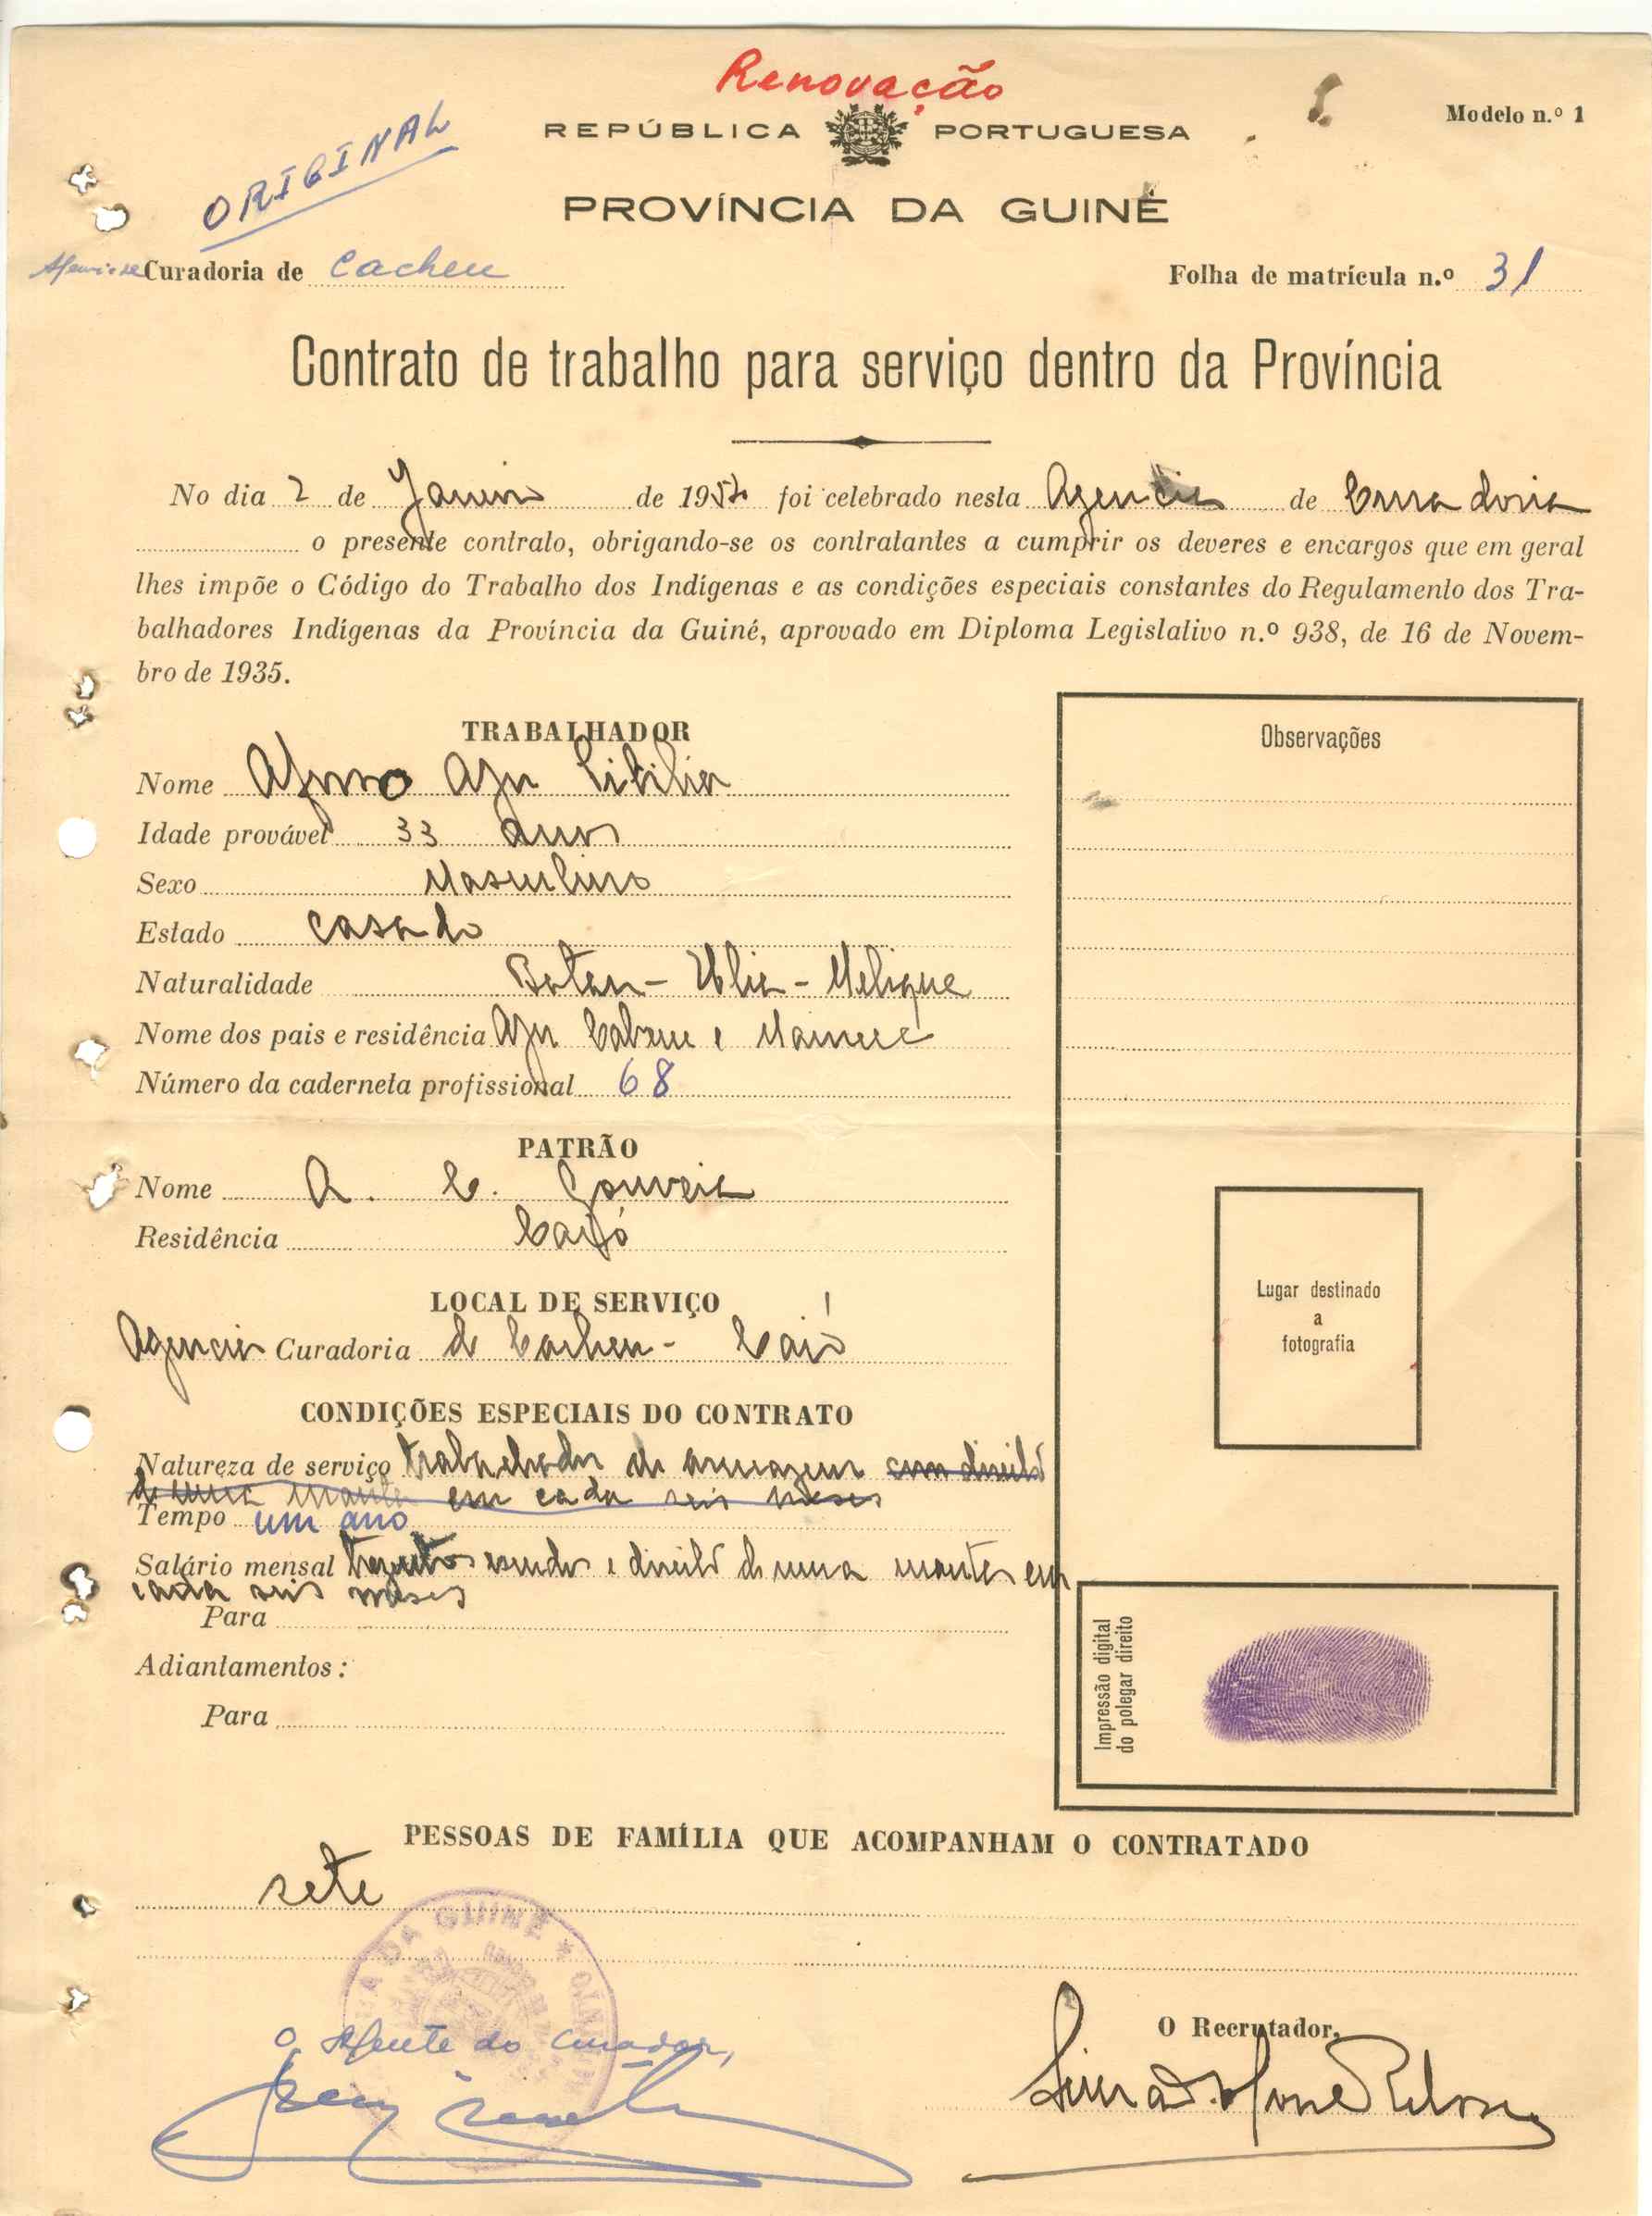 Renovação
ORIGINAL
REPÚBLICA PORTUGUESA
Modelo n.º 1
PROVÍNCIA DA GUINÉ
Curadoria de Cacheu
Folha de matrícula n.º 31
Contrato de trabalho para serviço dentro da Província
No dia 2 de Janeiro de 195 foi celebrado nesta Agencia de Curadoria
o presente contrato, obrigando-se os contratantes a cumprir os deveres e encargos que em geral
lhes impõe o Código do Trabalho dos Indígenas e as condições especiais constantes do Regulamento dos Tra-
balhadores Indígenas da Província da Guiné, aprovado em Diploma Legislativo n.º 938, de 16 de Novem-
bro de 1935.
TRABALHADOR
Observações
Nome
Idade provável 33 anos
Sexo Masculino
Estado casado
Naturalidade
Nome dos pais e residência
Número da caderneta profissional 68
PATRÃO
Nome A. C. Gouveia
Residência Caió
Lugar destinado
a
fotografia
LOCAL DE SERVIÇO
Agencia Curadoria de Cacheu - Caió
CONDIÇÕES ESPECIAIS DO CONTRATO
Natureza de serviço trabalhador de armazem com direito
de uma manta em cada seis meses
Tempo um ano
Salário mensal trezentos escudos e direito de uma manta em
cada seis meses
Para
Adiantamentos :
Para
Impressão digital
do polegar direito
PESSOAS DE FAMÍLIA QUE ACOMPANHAM O CONTRATADO
sete
DA GUINÉ
O Agente do Curador,
O Recrutador,